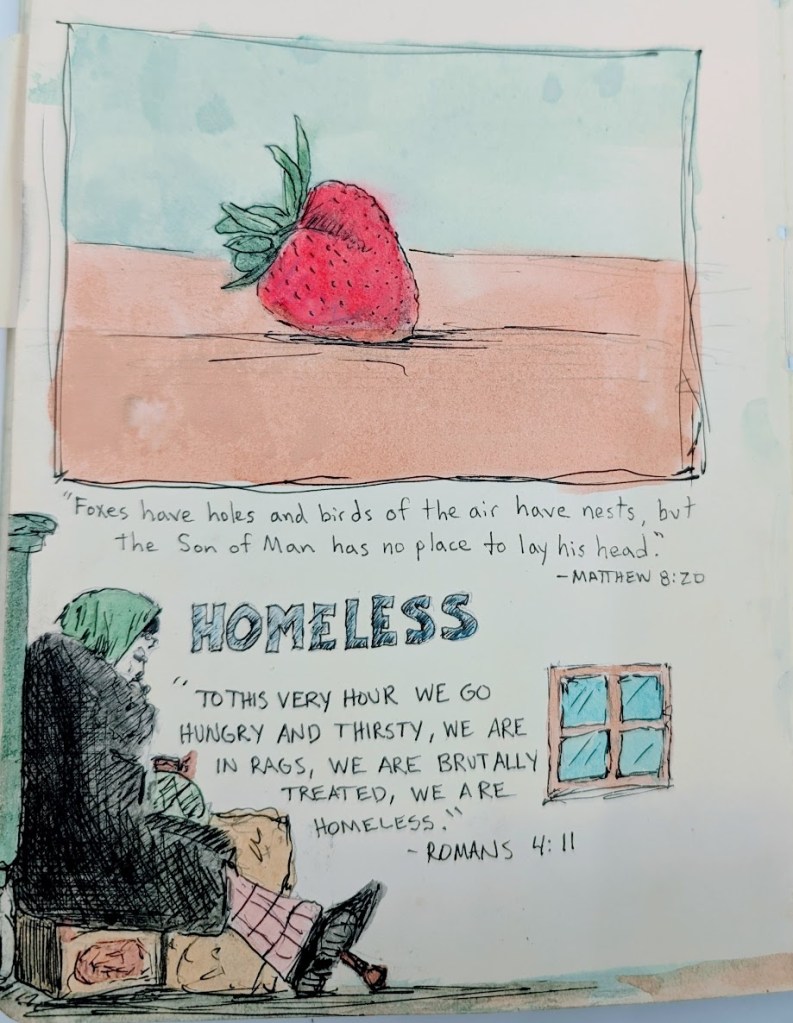 "Foxes have holes and birds of the air have nests, but
the Son of Man has no place to lay his head."
-MATTHEW 8:20
HOMELESS
"TO THIS VERY HOUR WE GO
HUNGRY AND THIRSTY, WE ARE
IN RAGS, WE ARE BRUTALLY
TREATED, WE ARE
HOMELESS."
- ROMANS 4:11